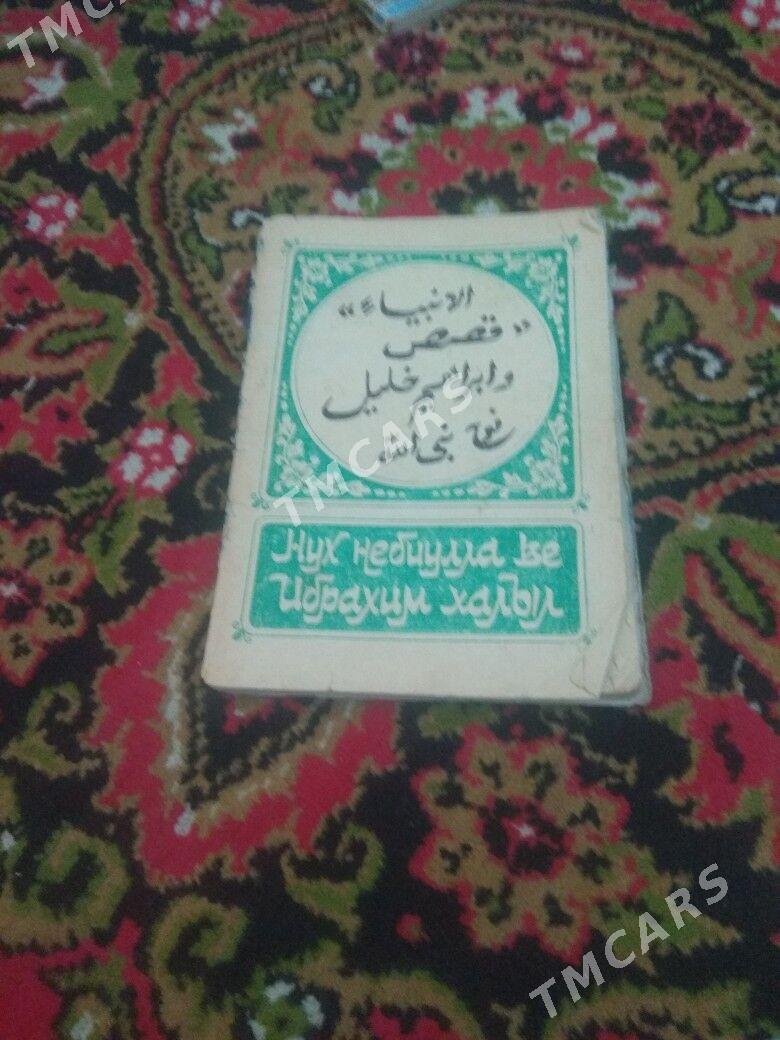 الانبياء»
«قصص
وابراهيم خليل
نوح نبى الله
Нух небиулла ве
Ибрахим халыл
TMCARS
TMCARS
TMCARS